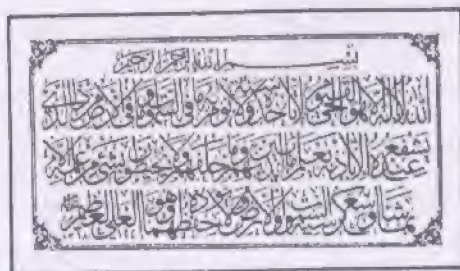 بسم الله الرحمن الرحيم
الله لا اله الا هو الحي القيوم لا تاخذه سنة ولا نوم له ما في السموات وما في الارض من ذا الذي
يشفع عنده الا باذنه يعلم ما بين ايديهم وما خلفهم ولا يحيطون بشيء من علمه الا
بما شاء وسع كرسيه السموات والارض ولا يؤده حفظهما وهو العلي العظيم